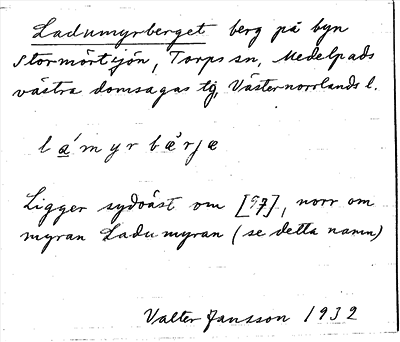 Ladumyrberget berg på byn
Stormörtsjön, Torps sn, Medelpads
västra domsagas tg, Västernorrlands l.
la´myrbæ`rjæ
Ligger sydväst om [57], norr om
myran Ladumyran (se detta namn)
Valter Jansson 1932